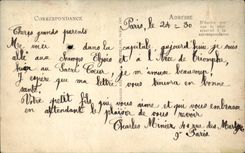 CORRESPONDANCE
ADRESSE
Paris, le 24-30
Chers grands parents
Me voici dans la capitale, aujourd'hui je suis
allé aux champs Elysées et à l'Arc de Triomphe,
hier au Sacré Coeur. je m'amuse beaucoup.
J'espère que ma lettre vous trouvera en bonne
santé.
Votre petit fils qui vous aime et qui vous embrasse
en attendant le plaisir de vous revoir.
Charles Minier rue des
Paris